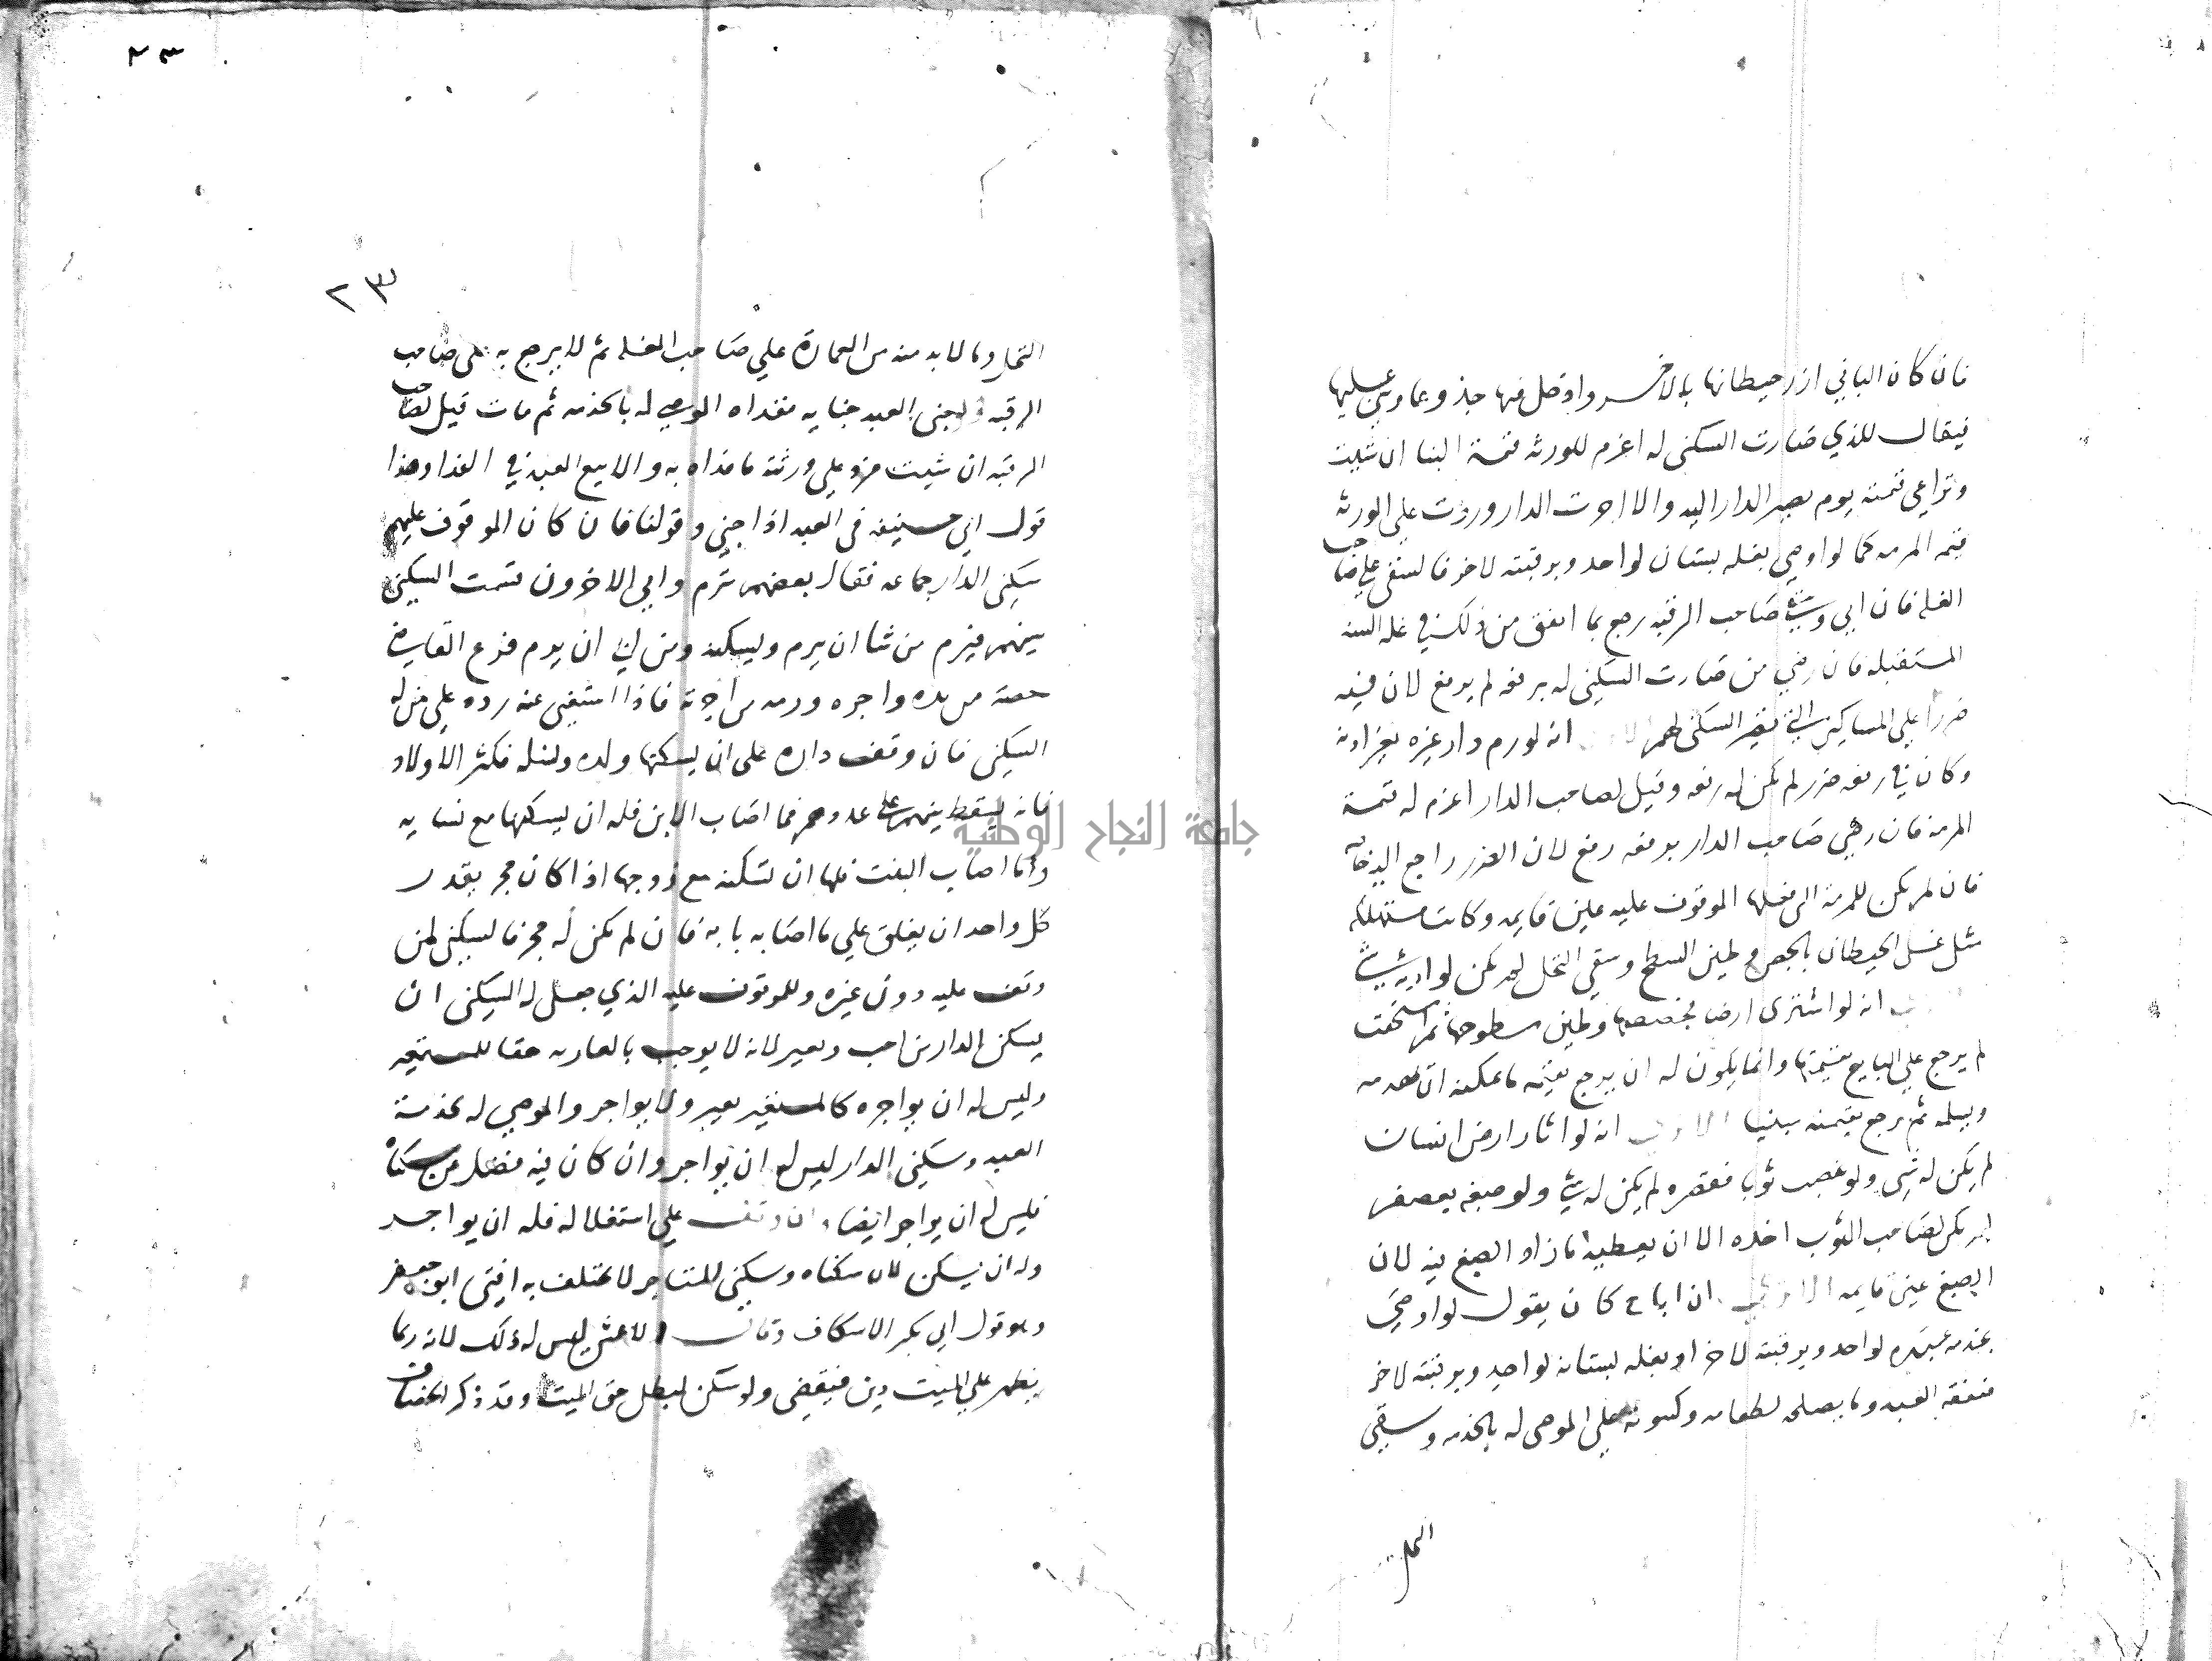 فان كان الباني ازر حيطانها بالاخر وادخل فيها جذوعا وبني عليها
فيقال للذي صارت السكنى له اغرم للورثه قيمة البنا ان شيت
وتراعي قيمته يوم يصير الدار اليه والا اجرت الدار وردت على الورثه
قيمه المرمه كما لو اوصى بغله بستان لواحد وبرقبته لاخر فالسقي على صاحب
الغله فان ابي وسقي صاحب الرقبه رجع بما انفق من ذلك في غله السنه
المستقبله فان رضي من صارت السكني له برفعه لم يرفع لان فيه
ضررا علي المساكين الاتري انه لو رم دار غيره بغير اذنه
وكان في رفعه ضرر لم يكن له رفعه وقيل لصاحب الدار اغرم له قيمة
المرمة فان رضي صاحب الدار برفعه رفع لان الضرر راجع اليه خاصة
فان لم يكن للمرمة التي فعلها الموقوف عليه عين قايمه وكانت مستهلكه
مثل غسل الحيطان بالجص وطين السطح وسقي النخل لم يكن لوارثه شي
انه لو اشترى ارضا فجصصها وطين سطوحها ثم استحقت
لم يرجع علي البايع بقيمتها وانما يكون له ان يرجع بقيمه ما يمكنه ان يهدمه
ويسلمه ثم يرجع بقيمته مبنيا الا ترى انه لو اثار ارض انسان
لم يكن له شي ولو غصب ثوبا فقصره لم يكن له شي ولو صبغه بعصفر
لم يكن لصاحب الثوب اخذه الا ان يعطيه ما زاد الصبغ فيه لان
الصبغ عين قايمه الا ترى ان اباح كان يقول لو اوصى
بخدمه عبده لواحد وبرقبته لاخر او بغله بستانه لواحد وبرقبته لاخر
فنفقه العبد وما يصلحه لطعامه وكسوته علي الموصى له بالخدمه وسقي
النخل
٢٣
٢٣
النخل وما لا بد منه من العمارة علي صاحب الغله ثم لا يرجع به على صاحب
الرقبه ولو جنى العبد جنايه ففداه الموصي له بالخدمه ثم مات قيل لصاحب
الرقبه ان شيت فرد علي ورثته ما فداه به والا بيع العبد في الفدا وهذا
قول ابي حنيفه في العبد اذا جني وقولنا فان كان الموقوف عليهم
سكنى الدار جماعه فقال بعضهم نرم وابي الاخرون قسمت السكنى
بينهم فيرم من شا ان يرم ويسكنه ومن ابى ان يرم نزع القاضي
حصته من يده واجره ورمه من اجرته فاذا استغنى عنه رده علي من له
السكنى فان وقف داره على ان يسكنها ولده ونسله فكثر الاولاد
فانه يسقط بينهم على عددهم فما اصاب الابن فله ان يسكنها مع نسايه
وما اصاب البنت فلها ان تسكنه مع زوجها اذا كان حجر يقدر
كل واحد ان يغلق علي ما اصابه بابه فان لم يكن له حجر فالسكنى لمن
وقف عليه دون غيره وللموقوف عليه الذي جعل له السكنى ان
يسكن الدار من احب ويعير لانه لا يوجب بالعاريه حقا للمستعير
وليس له ان يواجره كالمستعير يعير ولا يواجر والموصي له بخدمة
العبد وسكنى الدار ليس له ان يواجر وان كان فيه فضل من سكناه
فليس له ان يواجر ايضا وان وقف علي استغلاله فله ان يواجر
وله ان يسكن لان سكناه وسكنى المستاجر لا يختلف به افتى ابو جعفر
وهو قول ابي بكر الاسكاف وقال الاعمش ليس له ذلك لانه ربما
يظهر علي الميت دين فيقضى ولو سكن لبطل حق الميت وقد ذكر الخصاف
جامعة النجاح الوطنية